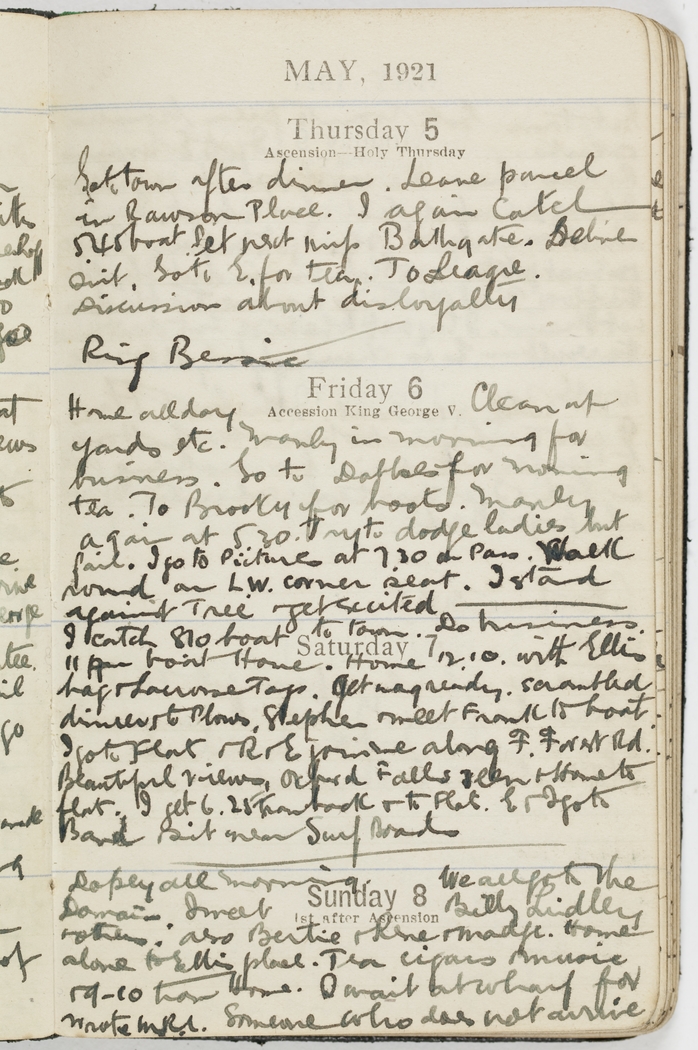 MAY, 1921
Thursday 5
Ascension—Holy Thursday
Go to town after dinner. Leave parcel
in Rawson Place. I again catch
545 boat Set next miss Bathgate.
Go to E. for tea. To League.
discussion about disloyalty
Ring Bessie
Friday 6
Accession King George V.
Home all day Clean at
yards etc. Manly in morning for
business. Go to for
tea. To Brooky for boots. Manly
again at 5.30. try to dodge ladies but
fail. I go to Pictures at 730 on Pass. Walk
round on L.W. corner seat. I stand
against Tree & get excited
I catch 810 boat to town. Do business.
Saturday 7
11 pm boat Home. Home 12.10. with Ellis
bag & Lacrosse Togs. Get mag ready. scrambled
dinner & to Plows, Stephen & meet Frank to boat
I go to Flat & R & E join me along F. Forest Rd.
Beautiful views, Oxford Falls seen & Home to
flat. I get 6.25 tram back & to Flat. E & I go to
Band & sit near Surf Boards
all morning. We all go to the
Sunday 8
1st after Ascension
Domain I meet Billy Lidley
& others. also Bertie & Rene & madge. Home
alone to Ellis place. Tea cigars & music
& 9-10 tram Home. I wait at wharf for
wrote Someone who does not arrive